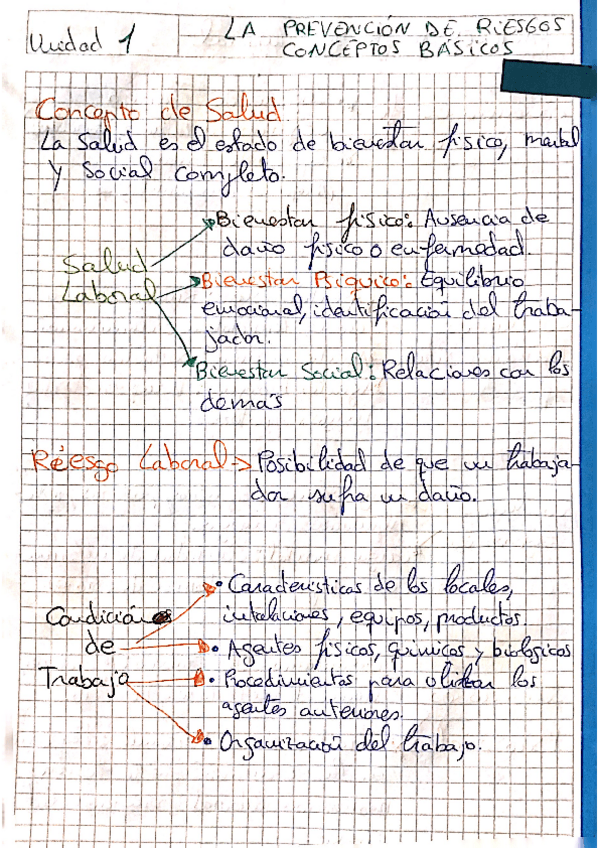 Unidad 1
LA PREVENCIÓN DE RIESGOS
CONCEPTOS BÁSICOS
Concepto de Salud
La Salud es el estado de bienestar físico, mental
y Social completo.
Salud
Laboral
Bienestar físico: Ausencia de
daño físico o enfermedad.
Bienestar Psíquico: Equilibrio
emocional, identificación del traba-
jador.
Bienestar Social: Relaciones con los
demás
Riesgo Laboral -> Posibilidad de que un trabaja-
dor sufra un daño.
Condiciones
de
Trabajo
• Características de los locales,
intalaciones, equipos, productos.
• Agentes físicos, químicos y biológicos
• Procedimientos para utilizar los
agentes anteriores.
• Organización del trabajo.